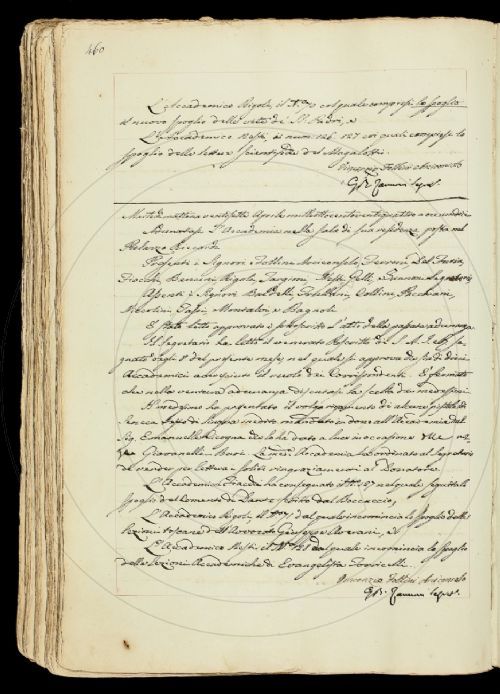 460
L'Accademico Rigoli, il N.º col quale compiesi lo spoglio
di nuovo spoglio delle vite de' SS. Padri, e
L'Accademico Nesti, i num. 126. 127 coi quali compiesi lo
spoglio delle lettere scientifiche del Magalotti.
Vincenzo Follini Arciconsolo
G. B. Zannoni Segret.
Martedì mattina ventisette Aprile milleottocentoventiquattro a ore undici
Adunatasi l'Accademia nella sala di sua residenza posta nel
Palazzo Riccardi
Presenti i Signori Follini Arciconsolo, Ferroni, Del Furia,
Fiacchi, Bencini, Rigoli, Targioni, Nesti, Zannoni Segretario
Assenti i Signori Baldelli, Collini, Pucciani,
Niccolini, Montalvi e Bagnoli
È stato letto approvato e sottoscritto l'atto della passata adunanza
Il Segretario ha letto il venerato Rescritto di S. A. I. e R. se-
gnato dagli del presente mese, nel quale si approva che
Accademici il ruolo dei Corrispondenti. È fermato
che nella ventura adunanza discutasi la scelta dei medesimi
Il medesimo ha presentato il volgarizzamento di alcune pistole di
Seneca testo di lingua inedito mandato in dono all'Accademia dal
Sig. Emanuelle Cicogna che lo ha dato a luce in occasione
Giovanelli. L'Accademia ha ordinato al Segretario
di render per lettera i soliti ringraziamenti al Donatore.
L'Accademico Fiacchi ha consegnato il N.º 157 nel quale seguita lo
spoglio del Comento di Dante scritto dal Boccaccio;
L'Accademico Rigoli, il dal quale incomincia lo spoglio delle
Lezioni toscane dell'Avvocato Giuseppe Averani, e
L'Accademico Nesti, il N.º 128 dal quale incomincia lo spoglio
delle Lezioni Accademiche di Evangelista Torricelli.
Vincenzo Follini Arciconsolo
G. B. Zannoni Segret.